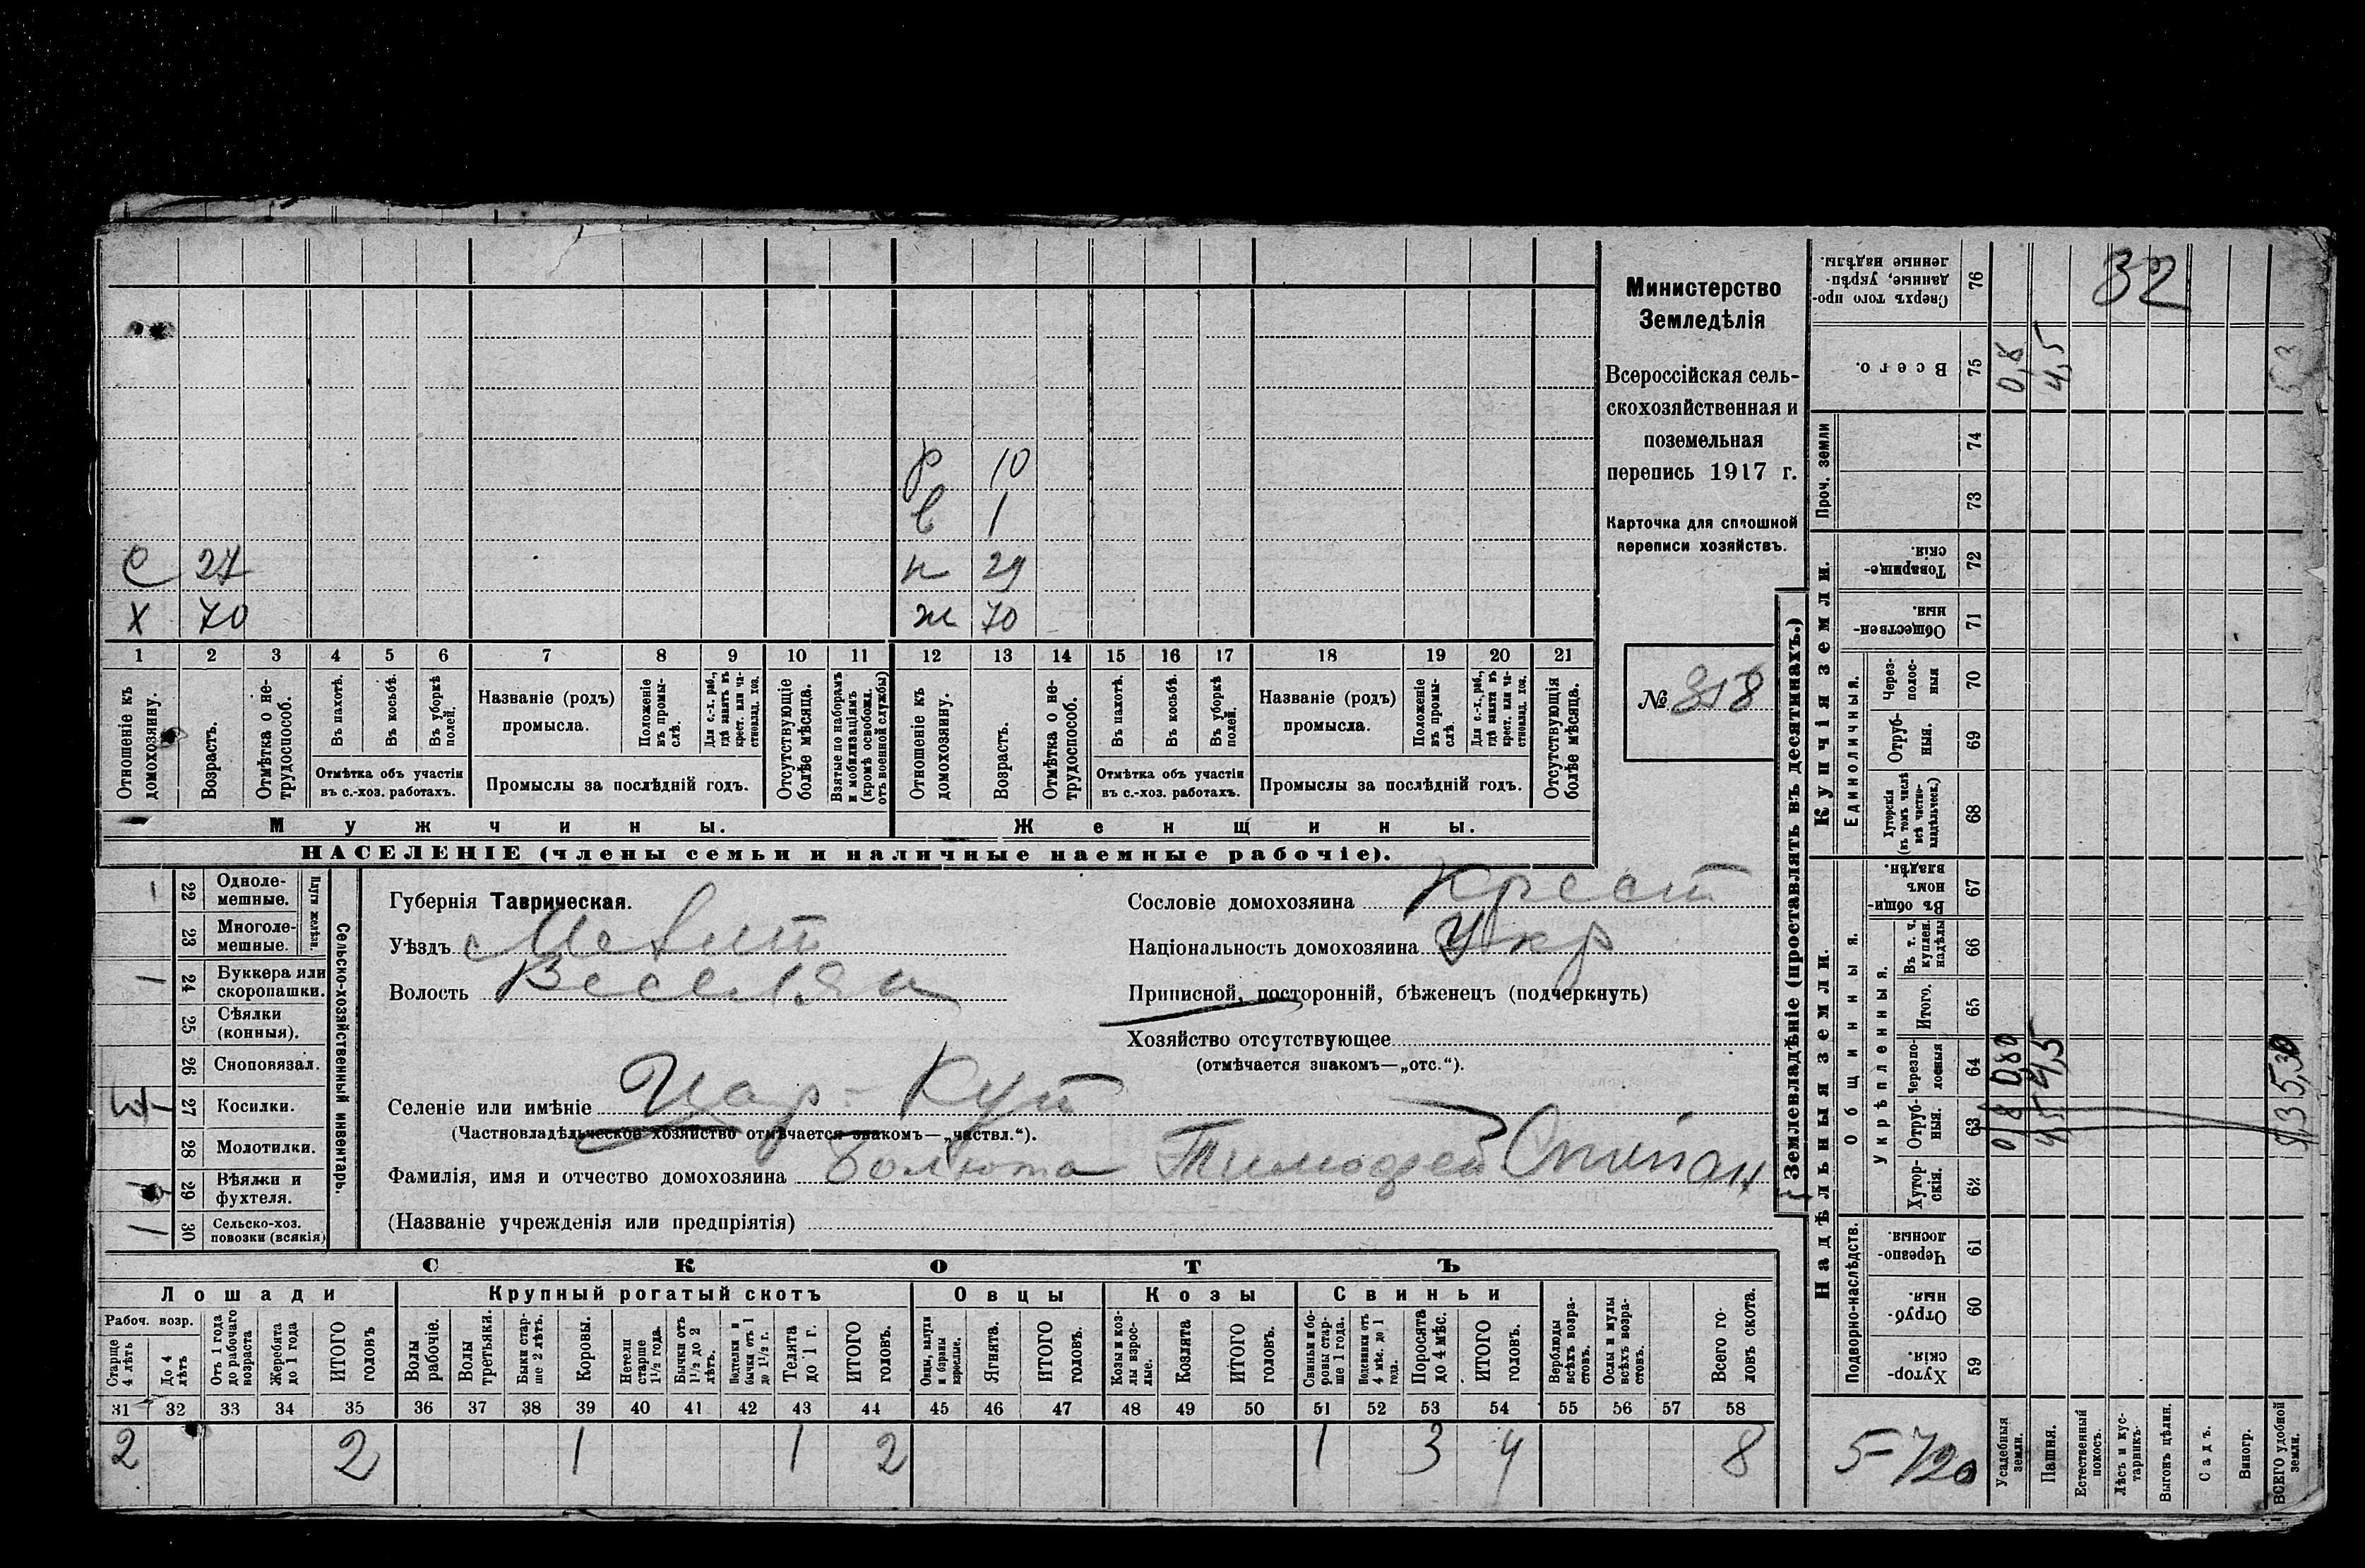 р 10
в 1
с 27 н 29
х 70 ж 70
1 2 3 4 5 6 7 8 9 10 11 12 13 14 15 16 17 18 19 20 21
Отношеніе къ домохозяину.
Возрастъ.
Отмѣтка о не-
трудоспособ.
Въ пахотѣ.
Въ косьбѣ.
Въ уборкѣ
полей.
Отмѣтка объ участіи
въ с.-хоз. работахъ.
Названіе (родъ)
промысла.
Положеніе
въ промы-
слѣ.
Для с.-х. раб.,
гдѣ занятъ въ
крест. или ча-
стновлад. хоз.
Промыслы за послѣдній годъ.
Отсутствующіе
болѣе мѣсяца.
Взятые по наборамъ
и мобилизаціямъ
(кромѣ освобожд.
отъ военной службы)
Отношеніе къ
домохозяину.
Возрастъ.
Отмѣтка о не-
трудоспособ.
Въ пахотѣ.
Въ косьбѣ.
Въ уборкѣ
полей.
Отмѣтка объ участіи
въ с.-хоз. работахъ.
Названіе (родъ)
промысла.
Положеніе
въ промы-
слѣ.
Для с.-х. раб.,
гдѣ занята въ
крест. или ча-
стновлад. хоз.
Промыслы за послѣдній годъ.
Отсутствующія
болѣе мѣсяца.
Мужчины. Женщины.
НАСЕЛЕНІЕ (члены семьи и наличные наемные рабочіе).
Министерство
Земледѣлія
Всероссійская сель-
скохозяйственная и
поземельная
перепись 1917 г.
Карточка для сплошной
переписи хозяйствъ.
№ 318
22 Одноле-
мешные.
23 Многоле-
мешные.
Плуги желѣзн.
24 Буккера или
скоропашки.
25 Сѣялки
(конныя).
26 Сноповязал.
27 Косилки.
28 Молотилки.
29 Вѣялки и
фухтеля.
30 Сельско-хоз.
повозки (всякія)
Сельско-хозяйственный инвентарь.
Губернія Таврическая.
Уѣздъ Мелит
Волость Веселян
Селеніе или имѣніе Цар-Кут
(Частновладѣльческое хозяйство отмѣчается знакомъ—„частвл.“).
Фамилія, имя и отчество домохозяина Болюта Тимофей Степан
(Названіе учрежденія или предпріятія)
Сословіе домохозяина Крест
Національность домохозяина Укр
Приписной, посторонній, бѣженецъ (подчеркнуть)
Хозяйство отсутствующее
(отмѣчается знакомъ—„отс.“).
СКОТЪ
Лошади Крупный рогатый скотъ Овцы Козы Свиньи
Рабоч. возр.
Старше
4 лѣтъ
До 4
лѣтъ
Отъ 1 года
до рабочаго
возраста
Жеребята
до 1 года
ИТОГО
головъ
Волы
рабочіе.
Волы
третьяки.
Быки стар-
ше 2 лѣтъ.
Коровы.
Нетели
старше
1½ года.
Бычки отъ
1½ до 2
лѣтъ.
Подтелки и
бычки отъ 1
до 1½ г.
Телята
до 1 г.
ИТОГО
головъ.
Овцы, валухи
и бараны
взрослые.
Ягнята.
ИТОГО
головъ.
Козы и коз-
лы взрос-
лые.
Козлята
ИТОГО
головъ.
Свиньи и бо-
ровы стар-
ше 1 года.
Подсвинки отъ
4 мѣс. до 1
года.
Поросята
до 4 мѣс.
ИТОГО
головъ.
Верблюды
всѣхъ возра-
стовъ.
Ослы и мулы
всѣхъ возра-
стовъ.
Всего го-
ловъ скота.
31 32 33 34 35 36 37 38 39 40 41 42 43 44 45 46 47 48 49 50 51 52 53 54 55 56 57 58
2 2 1 1 2 1 3 4 8
Землевладѣніе (проставлять въ десятинахъ.)
Надѣльныя земли. Купчія земли.
Подворно-наслѣдств.
Общинныя.
Укрѣпленныя.
Единоличныя.
Проч. земли
Сверхъ того про-
данные, укрѣп-
ленные надѣлы. 76 32
Всего. 75 0,8 4,5 5,3
74
73
Товарище-
скія. 72
Обществен-
ныя. 71
Через-
полос-
ныя 70
Отруб-
ныя. 69
Хуторскія
(въ томъ числѣ
всѣ частно-
владѣльческ.) 68
Въ общин-
номъ
владѣн. 67
Въ т. ч.
куплен.
надѣлы 66
Итого. 65
Черезпо-
лосныя 64 0,80 4,5 5,30
Отруб-
ныя. 63 0,8 4,5
Хутор-
скія. 62
Черезпо-
лосныя. 61
Отруб-
ныя. 60
Хутор-
скія. 59
5-720
Усадебныя
земли.
Пашня.
Естественный
покосъ.
Лѣсъ и кус-
тарникъ.
Выгонъ цѣлин.
Садъ.
Виногр.
ВСЕГО удобной
земли.